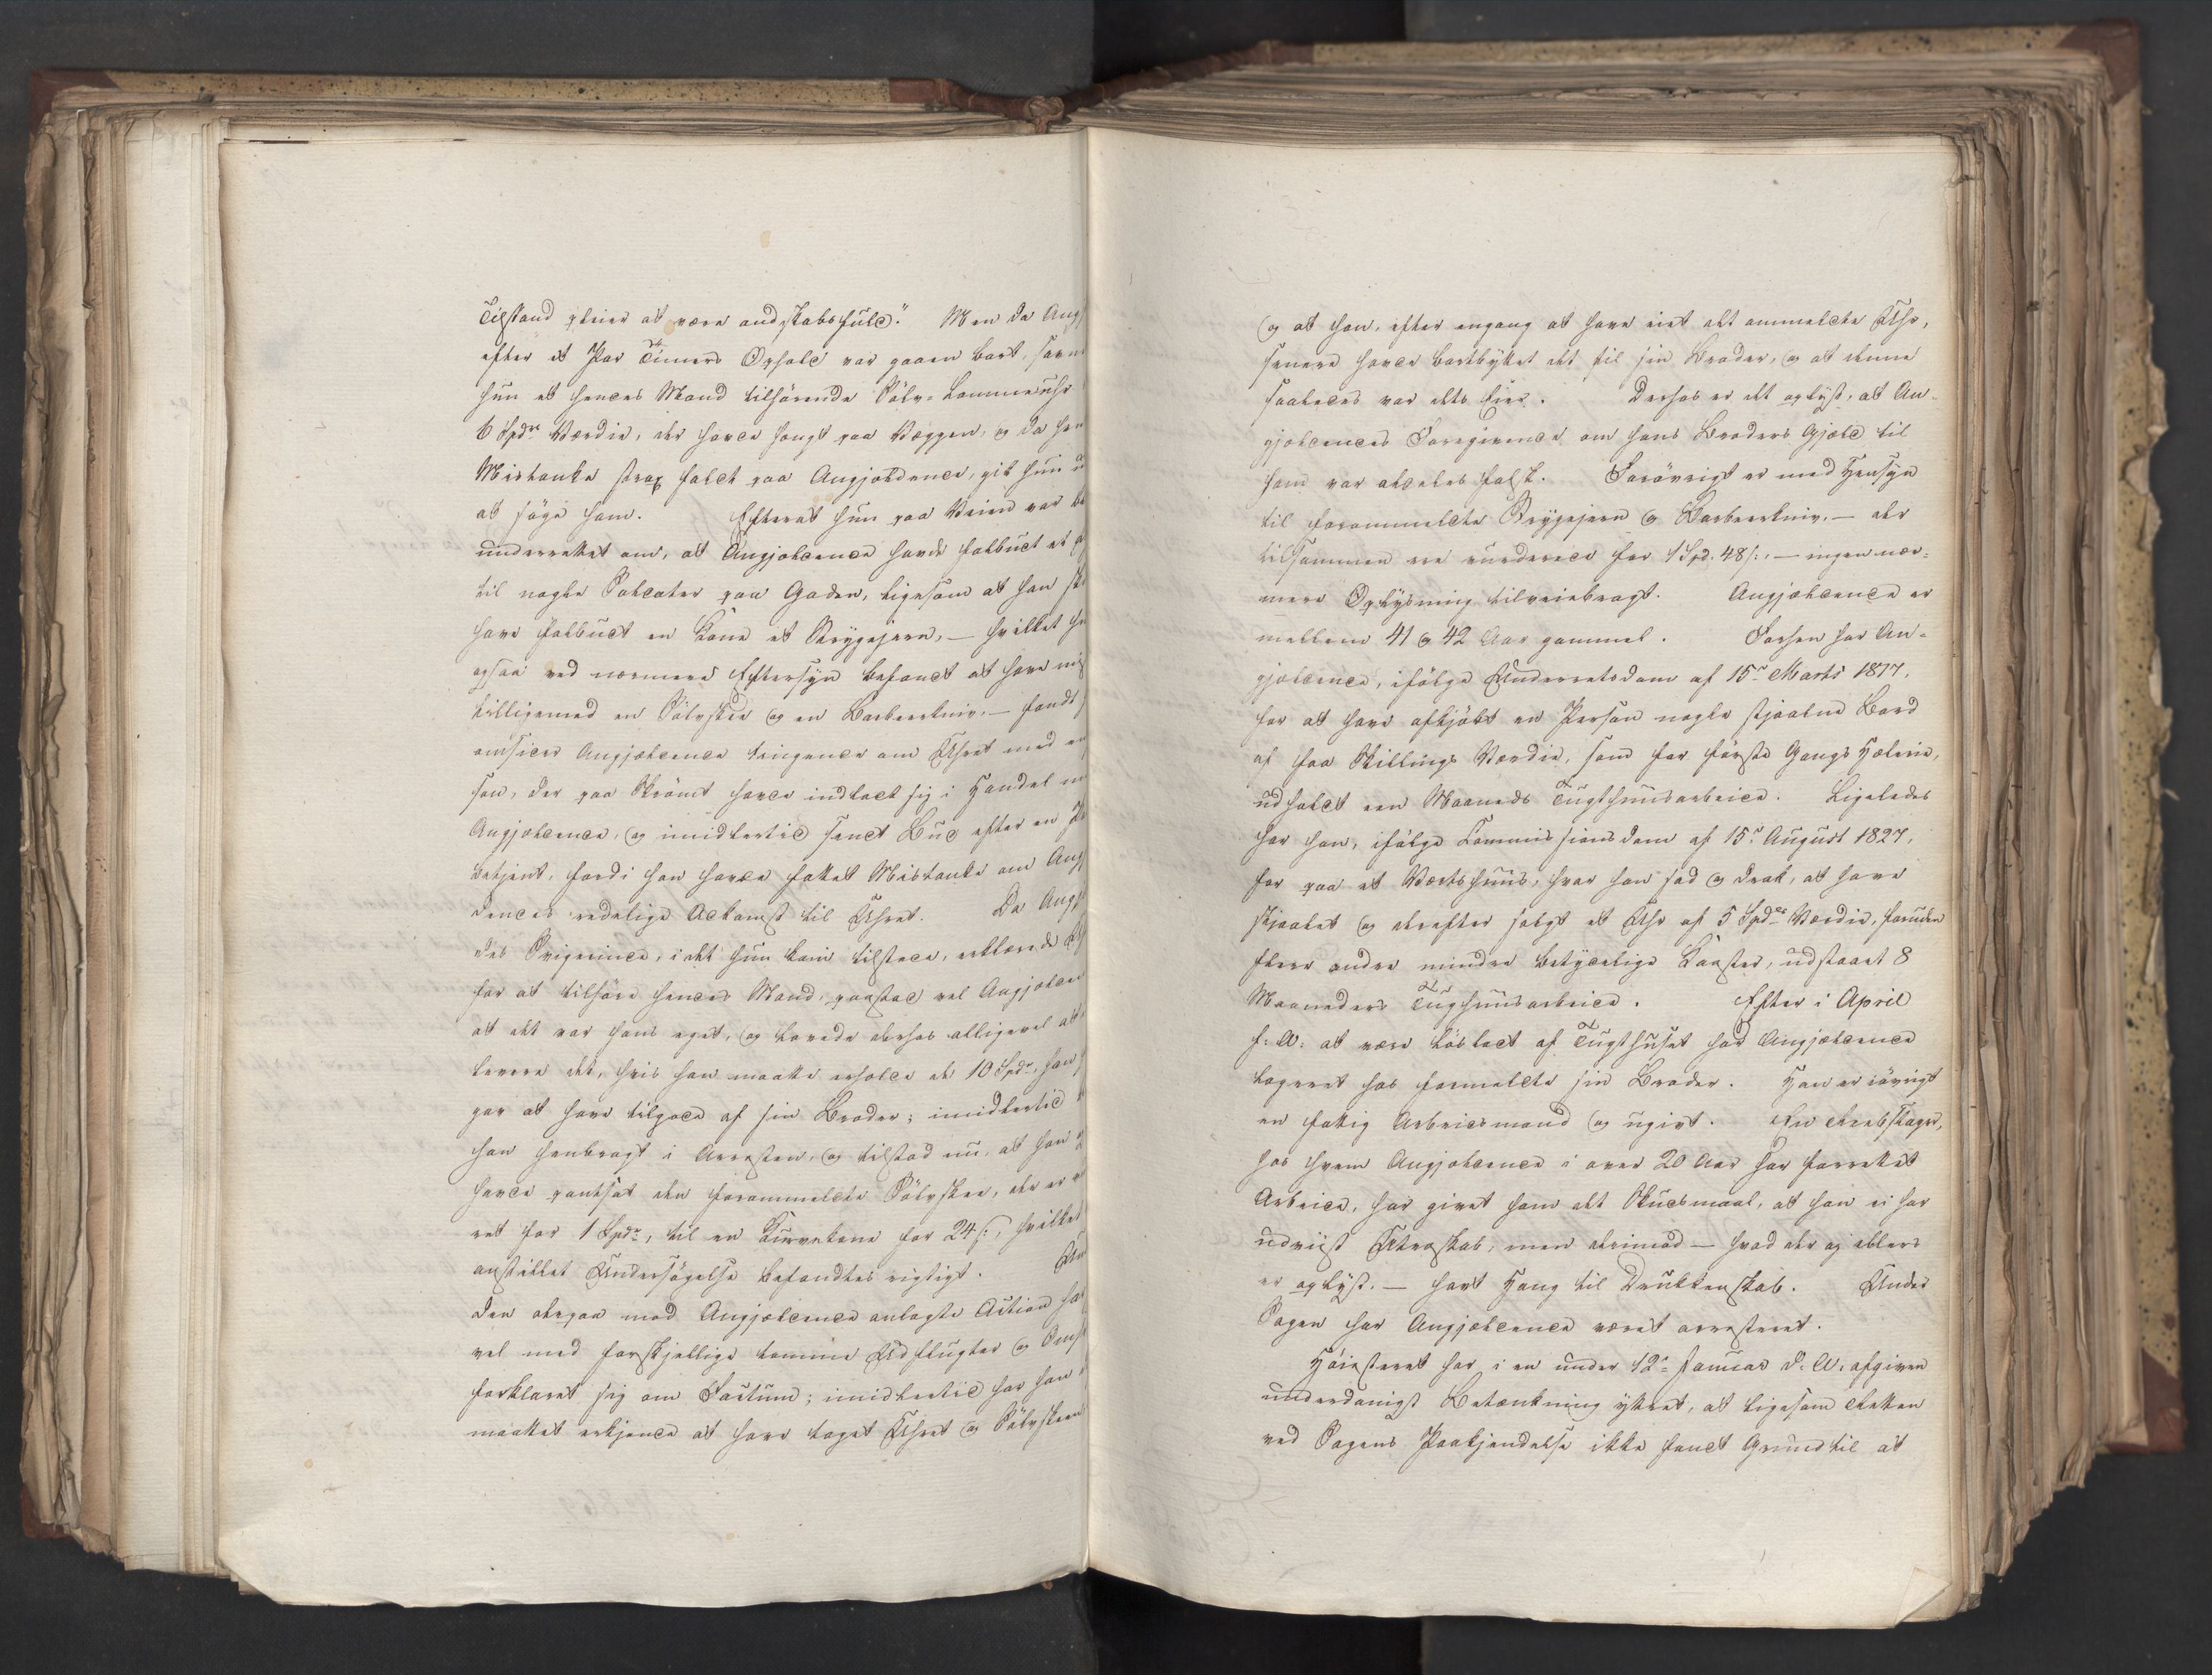 Tilstand pleier at være ondskabsfuld." Men da Ang
efter et Par Timers Ophold var gaaen bort, savn
hun et hendes Mand tilhørende Sølv-Lommeuhr
6 Spdrs Værdie, der havde hængt paa Væggen, og da hen
Mistanke strax faldt paa Angjældende, gik hun u
at søge ham. Efterat hun paa Veien var bl
underrettet om, at Angjældende havde falbudt et
til nogle Soldater paa Gaden, ligesom at han sk
have falbudt en Kone et Strygejern, — hvilket hu
ogsaa ved nærmere Eftersyn befandt at have mi
tilligemed en Sølvskee og en Barbeerkniv, — fandt
omsider Angjældende tingende om Uhret med en
son, der paa Skrømt havde indladt sig i Handel m
Angjældende, og imidlertid sendt Bud efter en Po
betjent, fordi han havde fattet Mistanke om Ang
dendes redelige Adkomst til Uhret. Da Angj
des Svigerinde, idet hun kom tilstede, erklærede Uh
for at tilhøre hendes Mand, paastod vel Angjælden
at det var hans eget, og lovede derhos alligevel at
levere det, hvis han maatte erholde de 10 Spdr, han
gav at have tilgode af sin Broder; imidlertid b
han henbragt i Arresten, og tilstod nu, at han
havde pantsat den forommeldte Sølvskee, der er v
ret for 1 Spdr, til en Kurvekone for 24 s:, hvilket
anstillet Undersøgelse befandtes rigtigt. Un
den derpaa mod Angjældende anlagte Action ha
vel med forskjellige tomme Udflugter og Oms
forklaret sig om Factum; imidlertid har han
maattet erkjende at have taget Uhret og Sølvskeen
og at han, efter engang at have eiet det ommeldte Uhr,
senere havde bortbyttet det til sin Broder, og at denne
saaledes var dets Eier. Derhos er det oplyst, at An-
gjældendes Foregivende om hans Broders Gjæld til
ham var aldeles falsk. Forøvrigt er med Hensyn
til forommeldte Strygejern og Barbeerkniv, — der
tilsammen ere vurderede for 1 Spd. 48 s:, — ingen nær-
mere Oplysning tilveiebragt. Angjældende er
mellem 41 og 42 Aar gammel. Forhen har An-
gjældende, ifølge Underretsdom af 15de Marts 1817,
for at have afkjøbt en Person nogle stjaalne Bord
af faa Skillings Værdie, som for første Gangs Hæleri,
udholdt een Maaneds Tugthuusarbeide. Ligeledes
har han, ifølge Commissionsdom af 15de August 1827,
for paa et Værtshuus, hvor han sad og drak, at have
stjaalet og derefter solgt et Uhr af 5 Spdrs Værdie, foruden
flere andre mindre betydelige Koster, udstaaet 8
Maaneders Tugthuusarbeide. Efter i April
f: A: at være løsladt af Tugthuset har Angjældende
logeret hos formeldte sin Broder. Han er iøvrigt
en fattig Arbeidsmand og ugivt. En Rebslager,
hos hvem Angjældende i over 20 Aar har forrettet
Arbeide, har givet ham det Skudsmaal, at han ei har
udviist Utroskab, men derimod — hvad der og ellers
er oplyst, — havt Hang til Drukkenskab. Under
Sagen har Angjældende været arresteret.
Høiesteret har i en under 12te Januar d: A: afgiven
underdanigst Betænkning yttret, at ligesom Retten
ved Sagens Paakjendelse ikke fandt Grund til at